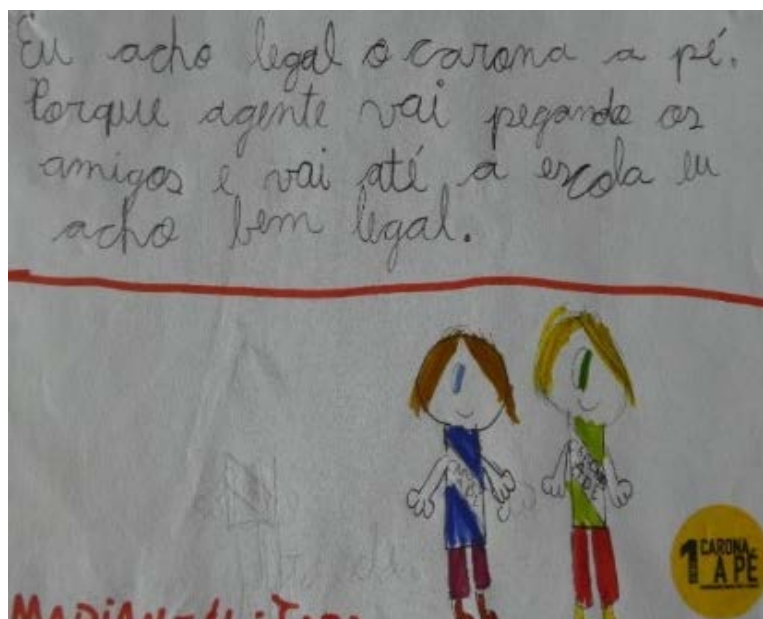 Eu acho legal o carona a pé.
Porque agente vai pegando os
amigos e vai até a escola eu
acho bem legal.
CARONA
A PÉ
1 CARONA
A PÉ